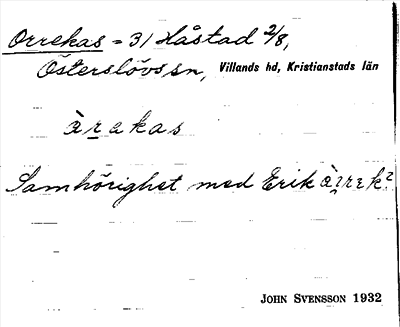 Orrekas = 31 Håstad 2/8,
Österslövs sn, Villands hd, Kristianstads län
àrakas
Samhörighet med Erik
JOHN SVENSSON 1932